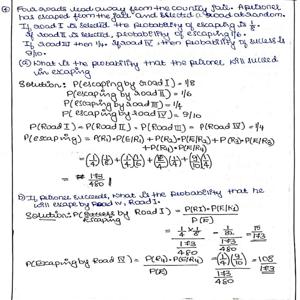 ④ Four roads lead away from the county jail. A prisoner
has escaped from the jail and selected a road at random.
If road I is selected, the probability of escaping is 1/8.
If road II is selected, probability of escaping 1/6.
If road III then 1/4. If road IV, then probability of success is
9/10.
(a) What is the probability that the prisoner will succeed
in escaping
Solution: P(escaping by road I) = 1/8
P(escaping by road II) = 1/6
P(escaping by road III) = 1/4
P(escaping by road IV) = 9/10
P(Road I) = P(Road II) = P(Road III) = P(Road IV) = 1/4
P(escaping) = P(R1)·P(E/R1) + P(R2)·P(E/R2) + P(R3)·P(E/R3)
+ P(R4)·P(E/R4)
= (1/4)(1/8) + (1/4)(1/6) + (1/4)(1/4) + (9/10)(1/4)
= 173/480
b) If prisoner succeeds, what is the probability that he
will escape by Road IV, Road I.
Solution: P(Success by Road I) = P(RI)·P(E/R1) / P(E)
escaping
= 1/4 × 1/8 / 173/480 = 1/32 / 173/480 = 15/173
P(Escaping by Road IV) = P(R4)·P(E/R4) / P(E) = (1/4)(9/10) / 173/480 = 108/173